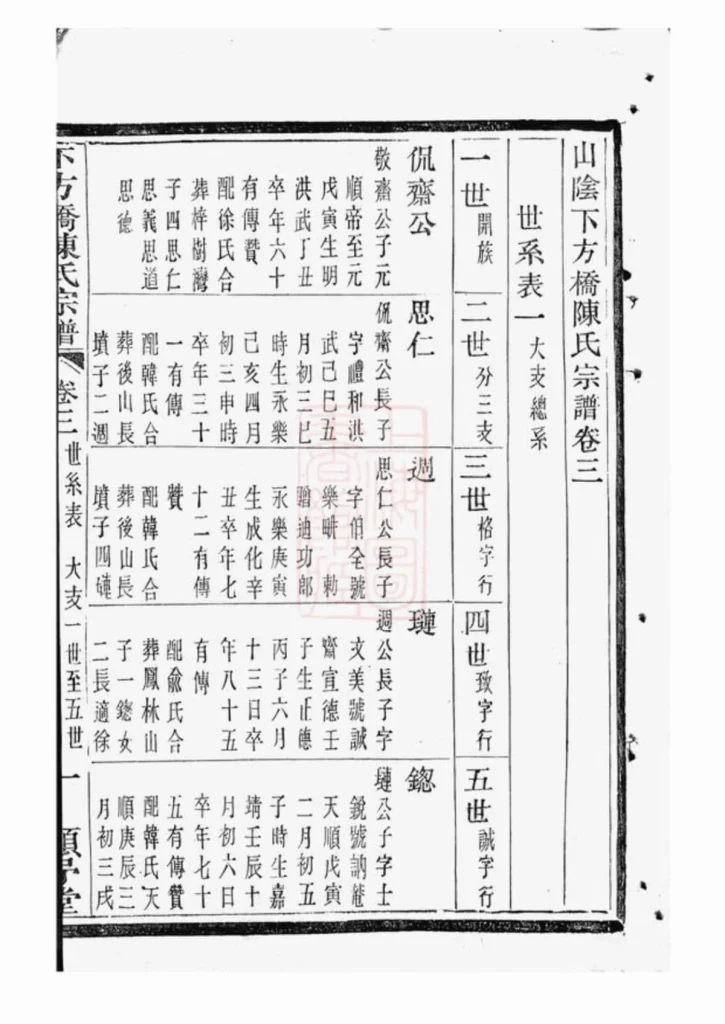 山陰下方橋陳氏宗譜卷三
世系表一 大支總系
一世 開族
侃齋公
敬齋公子元
順帝至元
戊寅生明
洪武丁丑
卒年六十
有傳贊
配徐氏合
葬梓樹灣
子四思仁
思義思道
思德
二世 分三支
思仁
侃齋公長子
字禮和洪
武己巳五
月初三巳
時生永樂
己亥四月
初三申時
卒年三十
一有傳
配韓氏合
葬後山長
墳子二週
三世 格字行
週
思仁公長子
字伯全號
樂畊 勅
贈迪功郎
永樂庚寅
生成化辛
丑卒年七
十二有傳
贊
配韓氏合
葬後山長
墳子四璉
四世 致字行
璉
週公長子字
文美號誠
齋宣德壬
子生正德
丙子六月
十三日卒
年八十五
有傳
配俞氏合
葬鳳林山
子一鍯女
二長適徐
五世 誠字行
鍯
璉公子字士
銳號訥菴
天順戊寅
二月初五
子時生嘉
靖壬辰十
月初六日
卒年七十
五有傳贊
配韓氏天
順庚辰三
月初三戌
下方橋陳氏宗譜 卷三 世系表 大支一世至五世 一